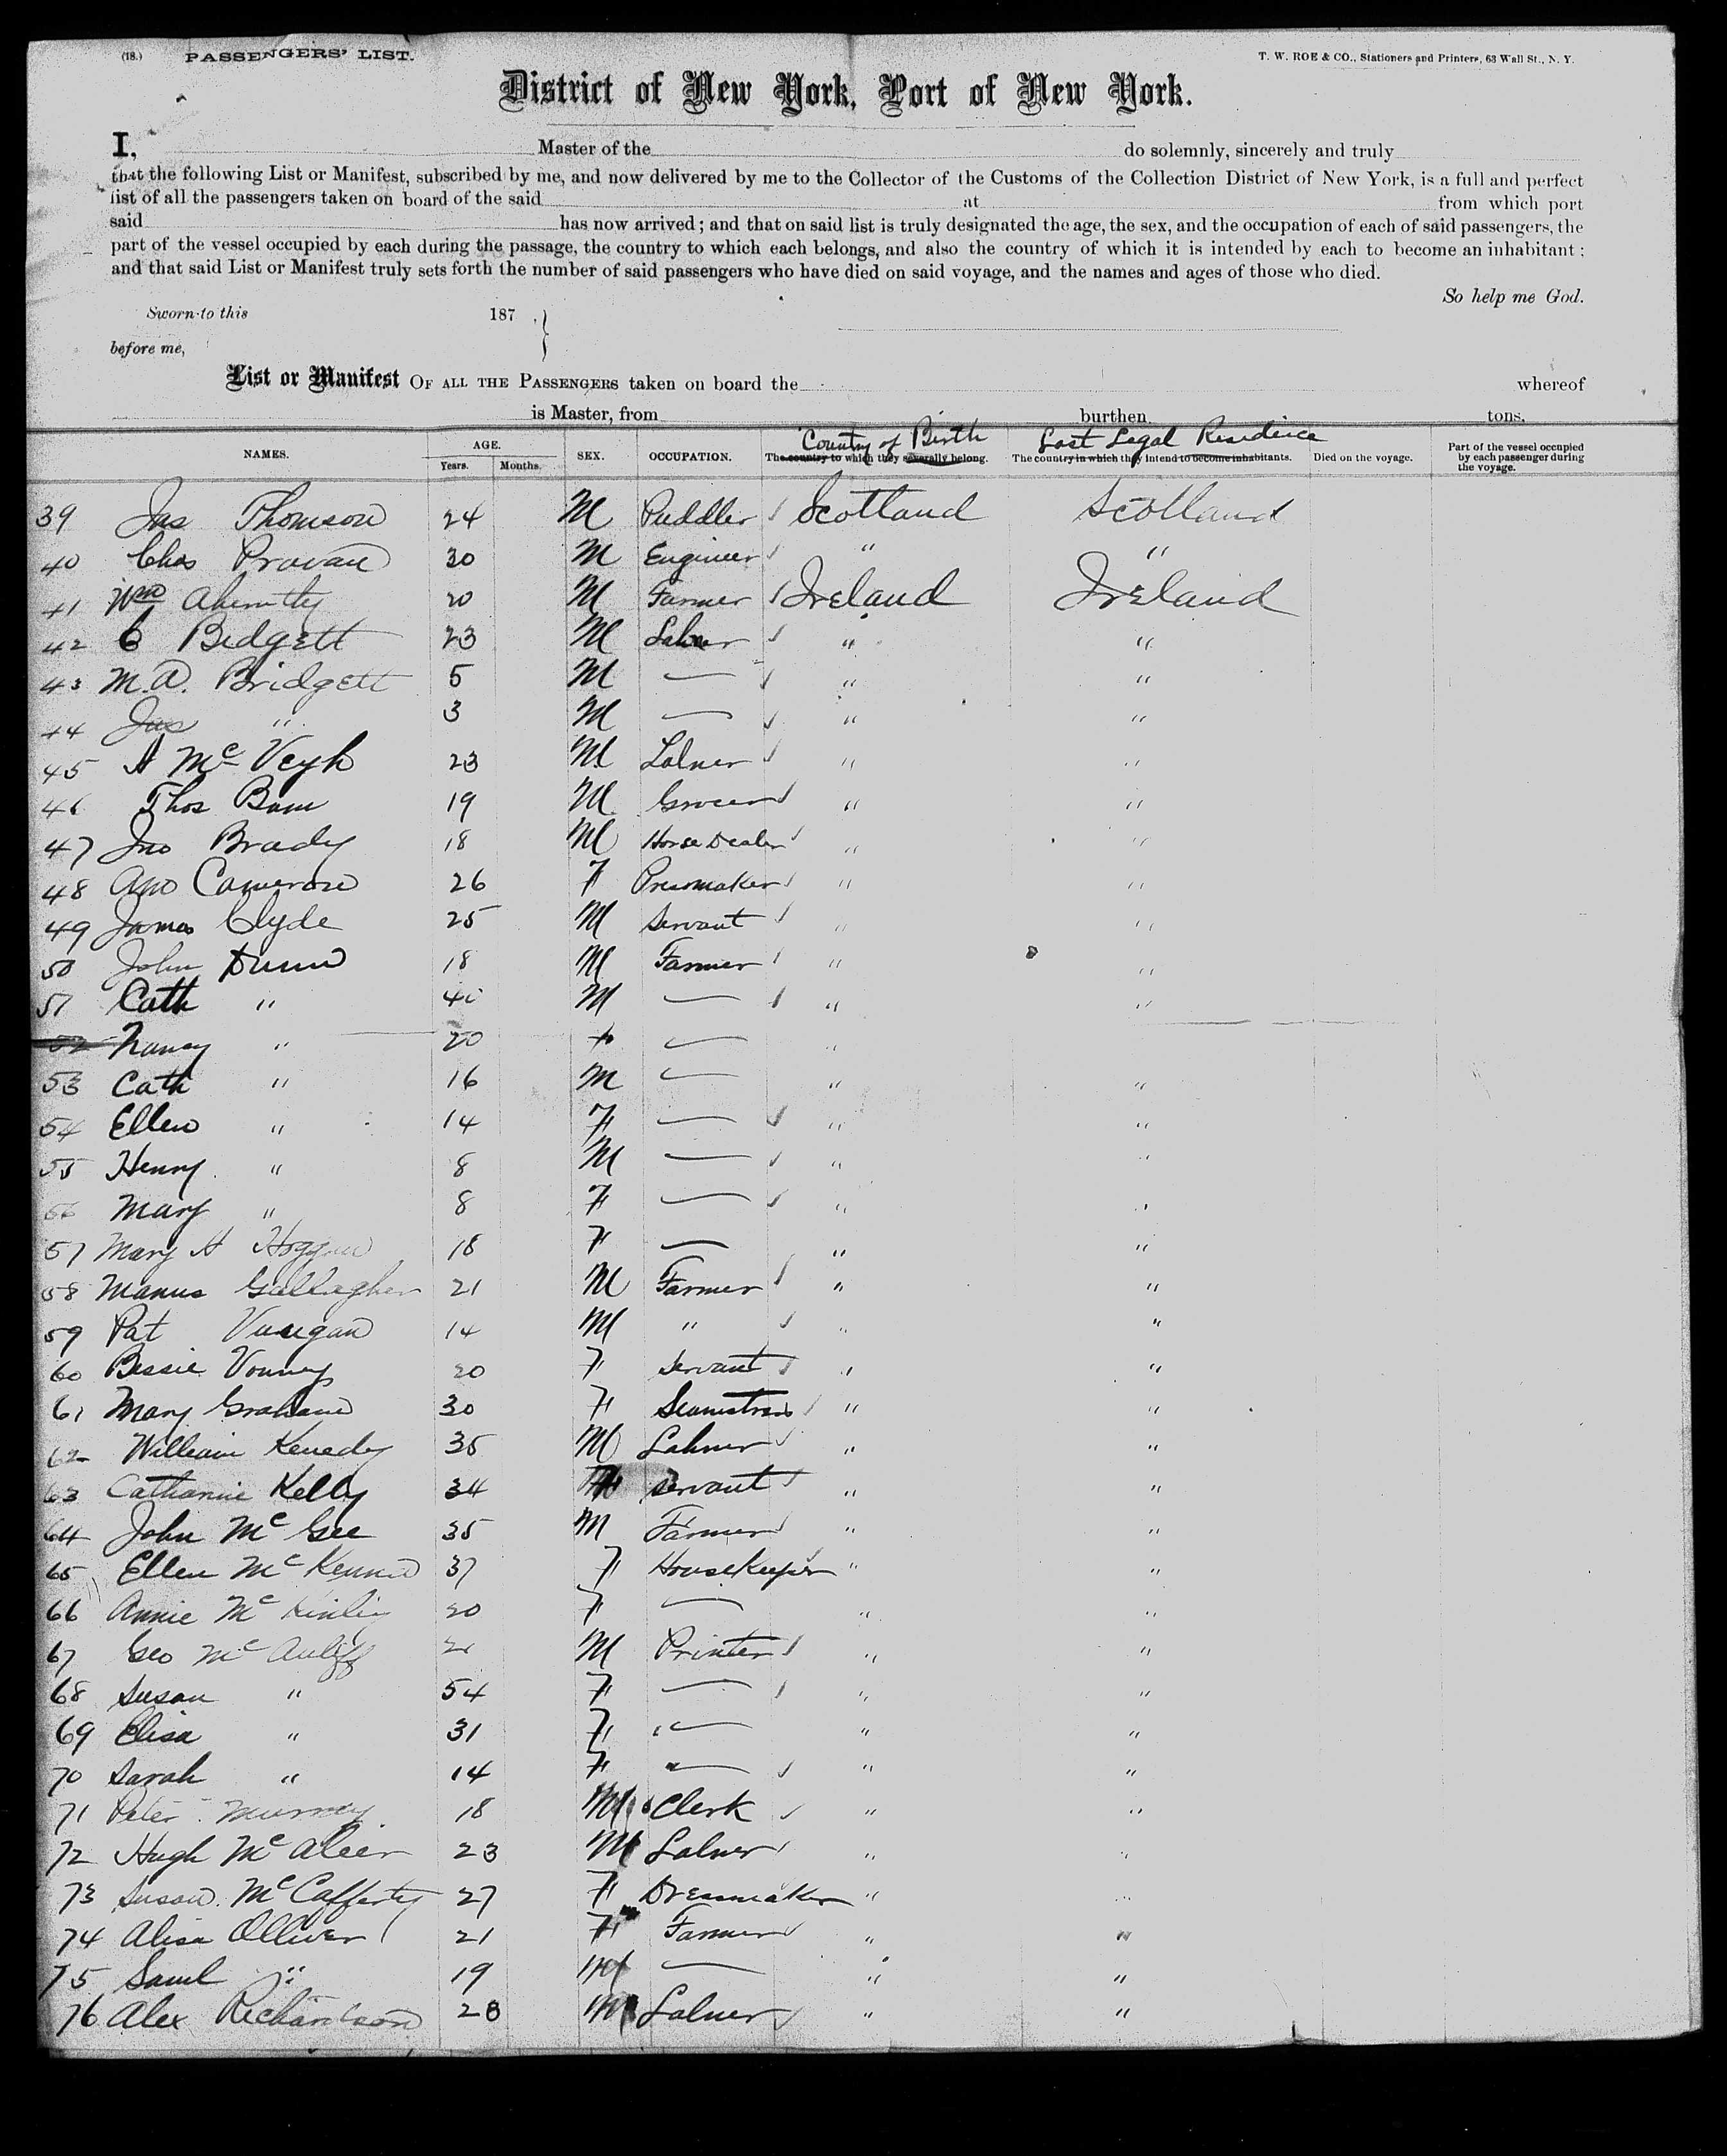 (18.) PASSENGERS' LIST. T. W. ROE & CO., Stationers and Printers, 63 Wall St., N. Y.
District of New York, Port of New York.
I, Master of the do solemnly, sincerely and truly
that the following List or Manifest, subscribed by me, and now delivered by me to the Collector of the Customs of the Collection District of New York, is a full and perfect
list of all the passengers taken on board of the said at from which port
said has now arrived; and that on said list is truly designated the age, the sex, and the occupation of each of said passengers, the
part of the vessel occupied by each during the passage, the country to which each belongs, and also the country of which it is intended by each to become an inhabitant;
and that said List or Manifest truly sets forth the number of said passengers who have died on said voyage, and the names and ages of those who died.
So help me God.
Sworn to this 187 .
before me,
List or Manifest OF ALL THE PASSENGERS taken on board the whereof
is Master, from burthen tons.
NAMES. AGE. Years. Months. SEX. OCCUPATION. Country of Birth The country to which they severally belong. Last Legal Residence The country in which they intend to become inhabitants. Died on the voyage. Part of the vessel occupied by each passenger during the voyage.
39 Jas Thomson 24 M Puddler Scotland Scotland
40 Chas Provan 30 M Engineer " "
41 Wm Abernthy 20 M Farmer Ireland Ireland
42 C Bidgett 23 M Labner " "
43 M.A. Bridgett 5 M — " "
44 Jas " 3 M — " "
45 A McVeyh 23 M Labner " "
46 Thos 19 M Grocer " "
47 Jno Brady 18 M Horse Dealer " "
48 Ann Cameron 26 F Dressmaker " "
49 James Clyde 25 M Servant " "
50 John Dunn 18 M Farmer " "
51 Cath " 40 M — " "
52 Nancy " 20 — "
53 Cath " 16 M — " "
54 Ellen " 14 F — " "
55 Henry " 8 M — " "
56 Mary " 8 F — " "
57 Mary A 18 F — " "
58 Manus Gallagher 21 M Farmer " "
59 Pat 14 M " " "
60 Bessie 20 F Servant " "
61 Mary Graham 30 F Seamstress " "
62 William Kenedy 35 M Labner " "
63 Catharine Kelly 34 F Servant " "
64 John McGee 35 M Farmer " "
65 Ellen McKenna 37 F Housekeeper " "
66 Annie McKinley 20 F — " "
67 Geo McAuliff 21 M Printer " "
68 Susan " 54 F — " "
69 Elisa " 31 F "— " "
70 Sarah " 14 F "— " "
71 Peter Murray 18 M Clerk " "
72 Hugh McAleer 23 M Labner " "
73 Susan McCafferty 27 F Dressmaker " "
74 Alisa Olliver 21 F Farmer " "
75 Saml " 19 M — " "
76 Alex Richardson 28 M Labner " "